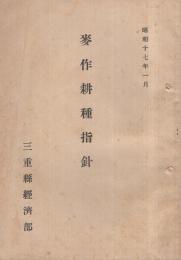 昭和十七年一月
麥作耕種指針
三重縣經濟部